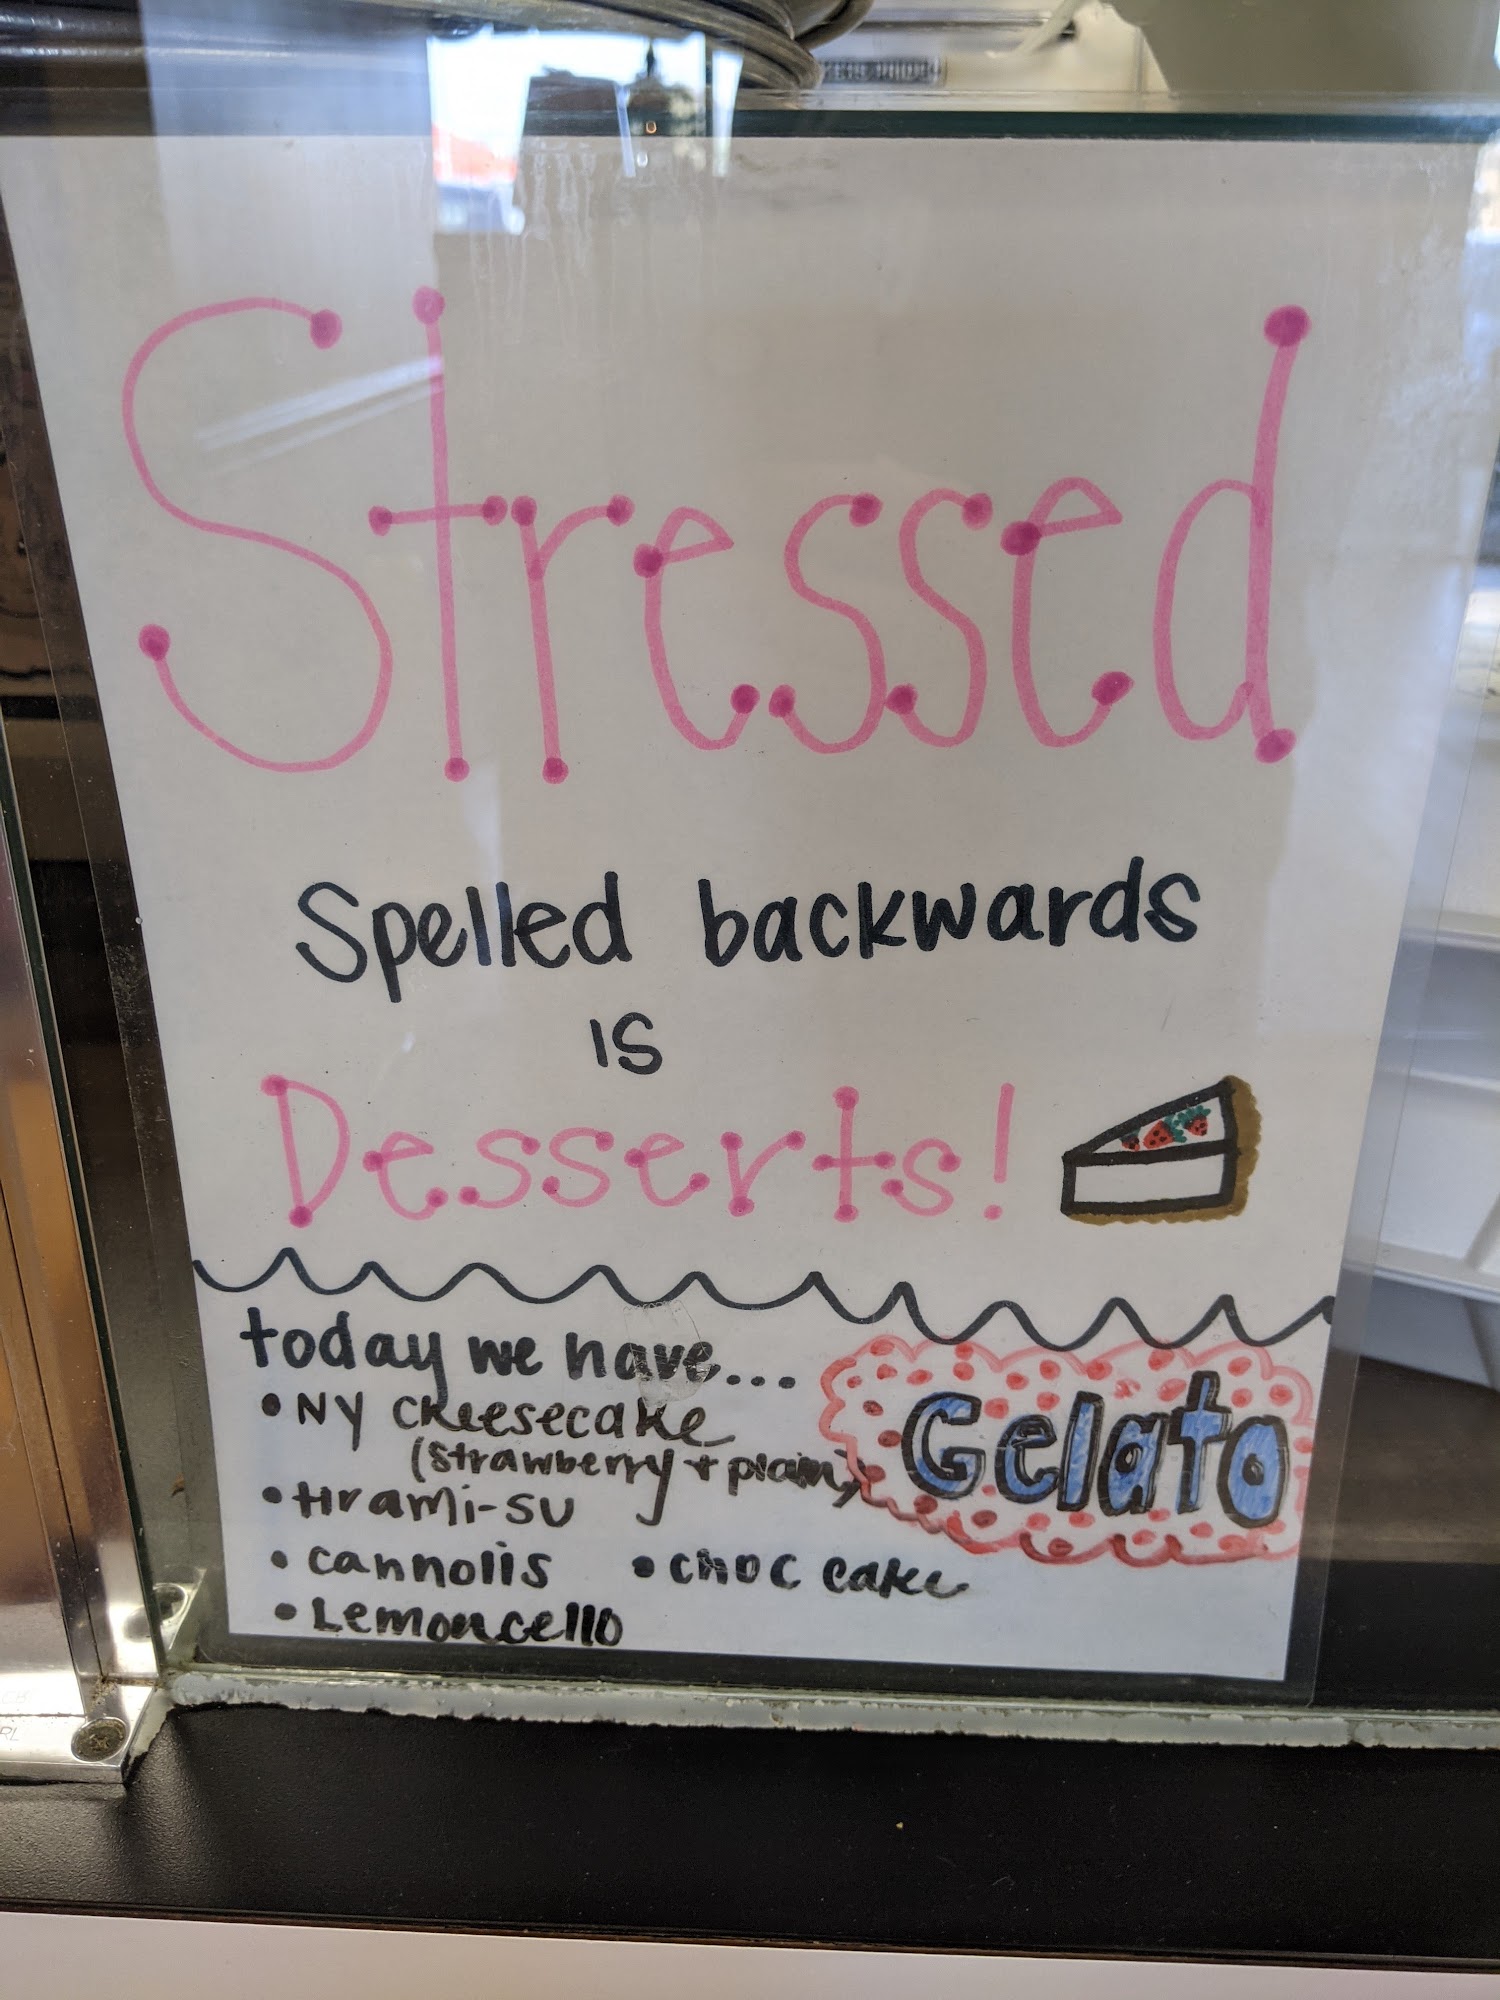 Stressed
Spelled backwards
is
Desserts!
today we have...
• NY cheesecake
(strawberry + plain)
• tirami-su
• cannolis • choc cake
• Lemoncello
Gelato